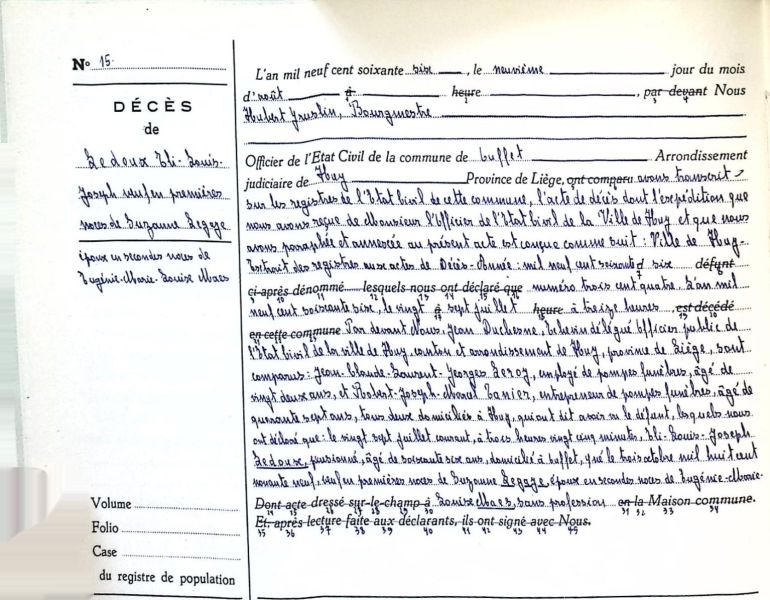 No 15.
DÉCÈS
de
Ledoux Eli-Louis-
Joseph veuf en premières
noces de Suzanne Legge
époux en secondes noces de
Eugénie-Marie-Louise Maes
Volume
Folio
Case
du registre de population
L'an mil neuf cent soixante six, le neuvième jour du mois
d'août à heure, par devant Nous
Hubert, Bourgmestre
Officier de l'Etat Civil de la commune de Arrondissement
judiciaire de Huy Province de Liège, ont comparu avons transcrit
sur les registres de l'Etat Civil de cette commune, l'acte de décès dont l'expédition que
nous avons reçue de Monsieur l'Officier de l'Etat Civil de la Ville de Huy et que nous
avons paraphée et annexée au présent acte est conçue comme suit : Ville de Huy.
Extrait des registres aux actes de Décès. Année : mil neuf cent soixante six défunt
ci-après dénommé lesquels nous ont déclaré que numéro trois cent quatre. L'an mil
10 11 12 13 14 15 16
neuf cent soixante six, le vingt à sept juillet heure à treize heures, est décédé
en cette commune Par devant Nous, Jean Duchesne, Echevin délégué Officier public de
l'Etat Civil de la ville de Huy, canton et arrondissement de Huy, province de Liège, sont
comparus : Jean-Claude-Laurent-Georges Leroy, employé de pompes funèbres, âgé de
vingt deux ans, et Robert-Joseph-Marcel Tanier, entrepreneur de pompes funèbres, âgé de
quarante sept ans, tous deux domiciliés à Huy, qui ont dit avoir vu le défunt, lesquels nous
ont déclaré que : le vingt sept juillet courant, à trois heures vingt cinq minutes, Eli-Louis-Joseph
Ledoux, pensionné, âgé de soixante six ans, domicilié à, né le trois octobre mil huit cent
nonante neuf, veuf en premières noces de Suzanne Legge, époux en secondes noces de Eugénie-Marie-
Dont acte dressé sur-le-champ à Louise Maes, sans profession en la Maison commune.
Et, après lecture faite aux déclarants, ils ont signé avec Nous.
35 36 37 38 39 40 41 42 43 44 45